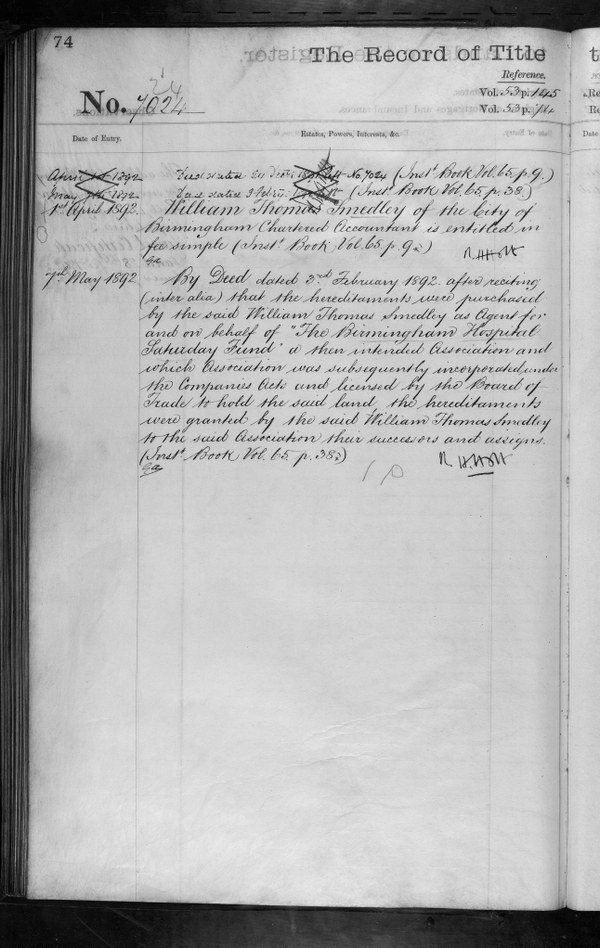 74
The Record of Title
Reference.
Vol. 53 p. 145
Vol. 53 p. 74
No. 7024
Date of Entry.
Estates, Powers, Interests, &c.
April 1st 1892
Deed dated 24 No. 7024 (Inst. Book Vol. 65, p. 9.)
May 7th 1892
Deed dated 3 Feby. (Inst. Book Vol. 65, p. 38.)
1st April 1892.
William Thomas Smedley of the City of
Birmingham Chartered Accountant is entitled in
fee simple (Inst. Book Vol. 65 p. 9.)
R H Holt
7th May 1892
By Deed dated 3rd February 1892. after reciting
(inter alia) that the hereditaments were purchased
by the said William Thomas Smedley as Agent for
and on behalf of "The Birmingham Hospital
Saturday Fund" a then intended Association and
which Association was subsequently incorporated under
the Companies Acts and licensed by the Board of
Trade to hold the said land the hereditaments
were granted by the said William Thomas Smedley
to the said Association their successors and assigns.
(Inst. Book Vol. 65. p. 38.)
R H Holt